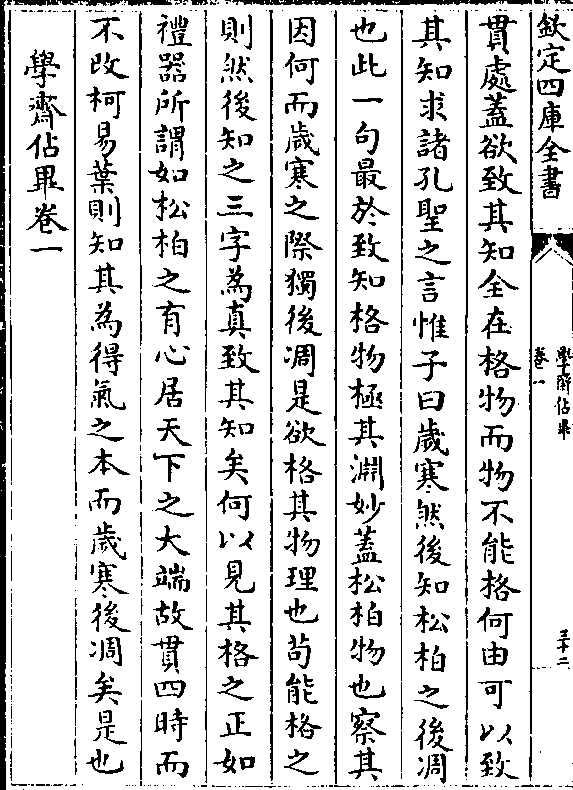 欽定四庫全書
學齋佔畢
卷一
三十二
貫處蓋欲致其知全在格物而物不能格何由可以致
其知求諸孔聖之言惟子曰歲寒然後知松柏之後凋
也此一句最於致知格物極其淵妙蓋松柏物也察其
因何而歲寒之際獨後凋是欲格其物理也苟能格之
則然後知之三字為真致其知矣何以見其格之正如
禮器所謂如松柏之有心居天下之大端故貫四時而
不改柯易葉則知其為得氣之本而歲寒後凋矣是也
學齋佔畢卷一